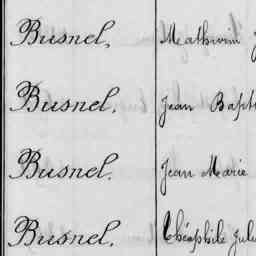 Busnel, Mathurin J
Busnel. Jean Bapt
Busnel. Jean Marie
Busnel. Théophile Jule